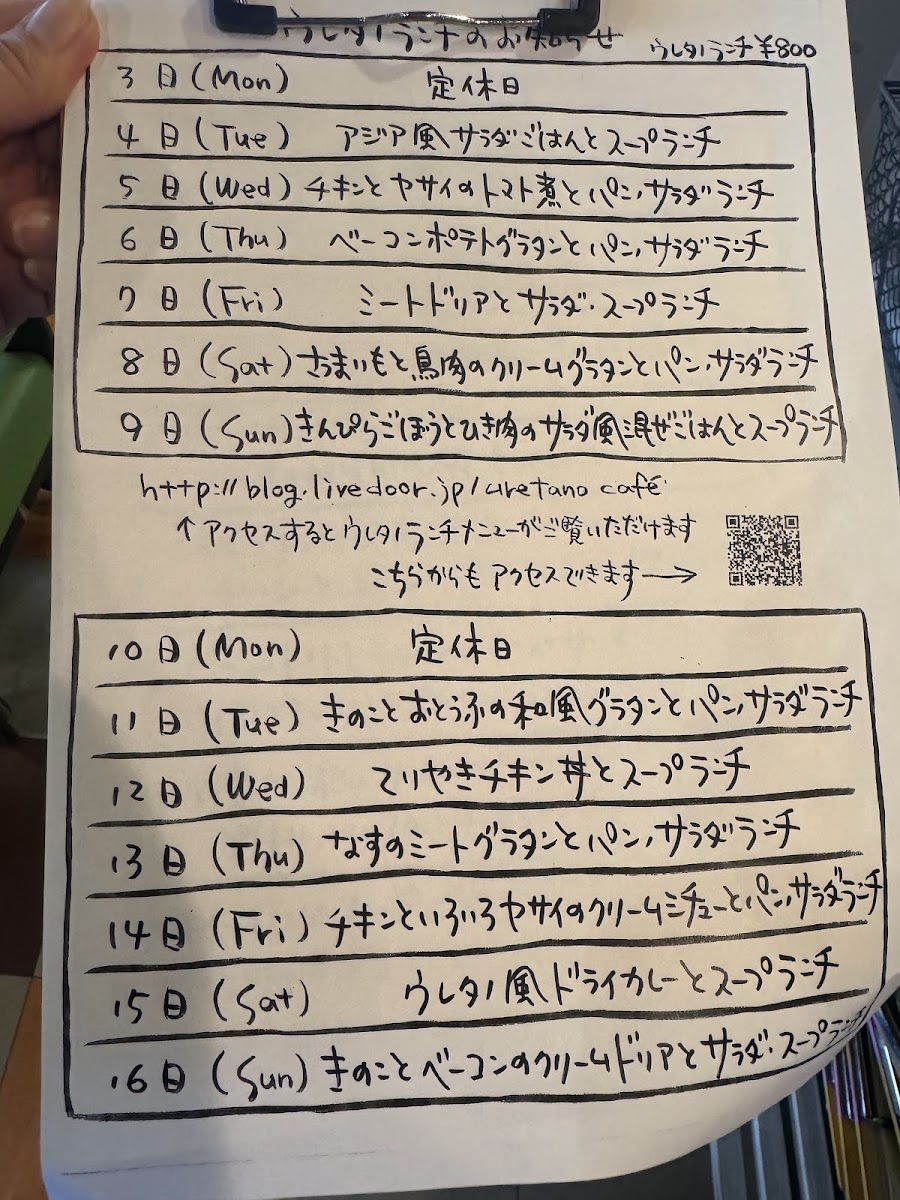 ウレタノランチのお知らせ
ウレタノランチ ¥800
3日(Mon) 定休日
4日(Tue) アジア風サラダごはんとスープランチ
5日(Wed) チキンとヤサイのトマト煮とパン,サラダランチ
6日(Thu) ベーコンポテトグラタンとパン,サラダランチ
7日(Fri) ミートドリアとサラダ・スープランチ
8日(Sat) さつまいもと鳥肉のクリームグラタンとパン,サラダランチ
9日(Sun) きんぴらごぼうとひき肉のサラダ風混ぜごはんとスープランチ
http://blog.livedoor.jp/uretano café
↑アクセスするとウレタノランチメニューがご覧いただけます
こちらからもアクセスできます→
10日(Mon) 定休日
11日(Tue) きのことおとうふの和風グラタンとパン,サラダランチ
12日(Wed) てりやきチキン丼とスープランチ
13日(Thu) なすのミートグラタンとパン,サラダランチ
14日(Fri) チキンといろいろヤサイのクリームシチューとパン,サラダランチ
15日(Sat) ウレタノ風ドライカレーとスープランチ
16日(Sun) きのことベーコンのクリームドリアとサラダ・スープランチ